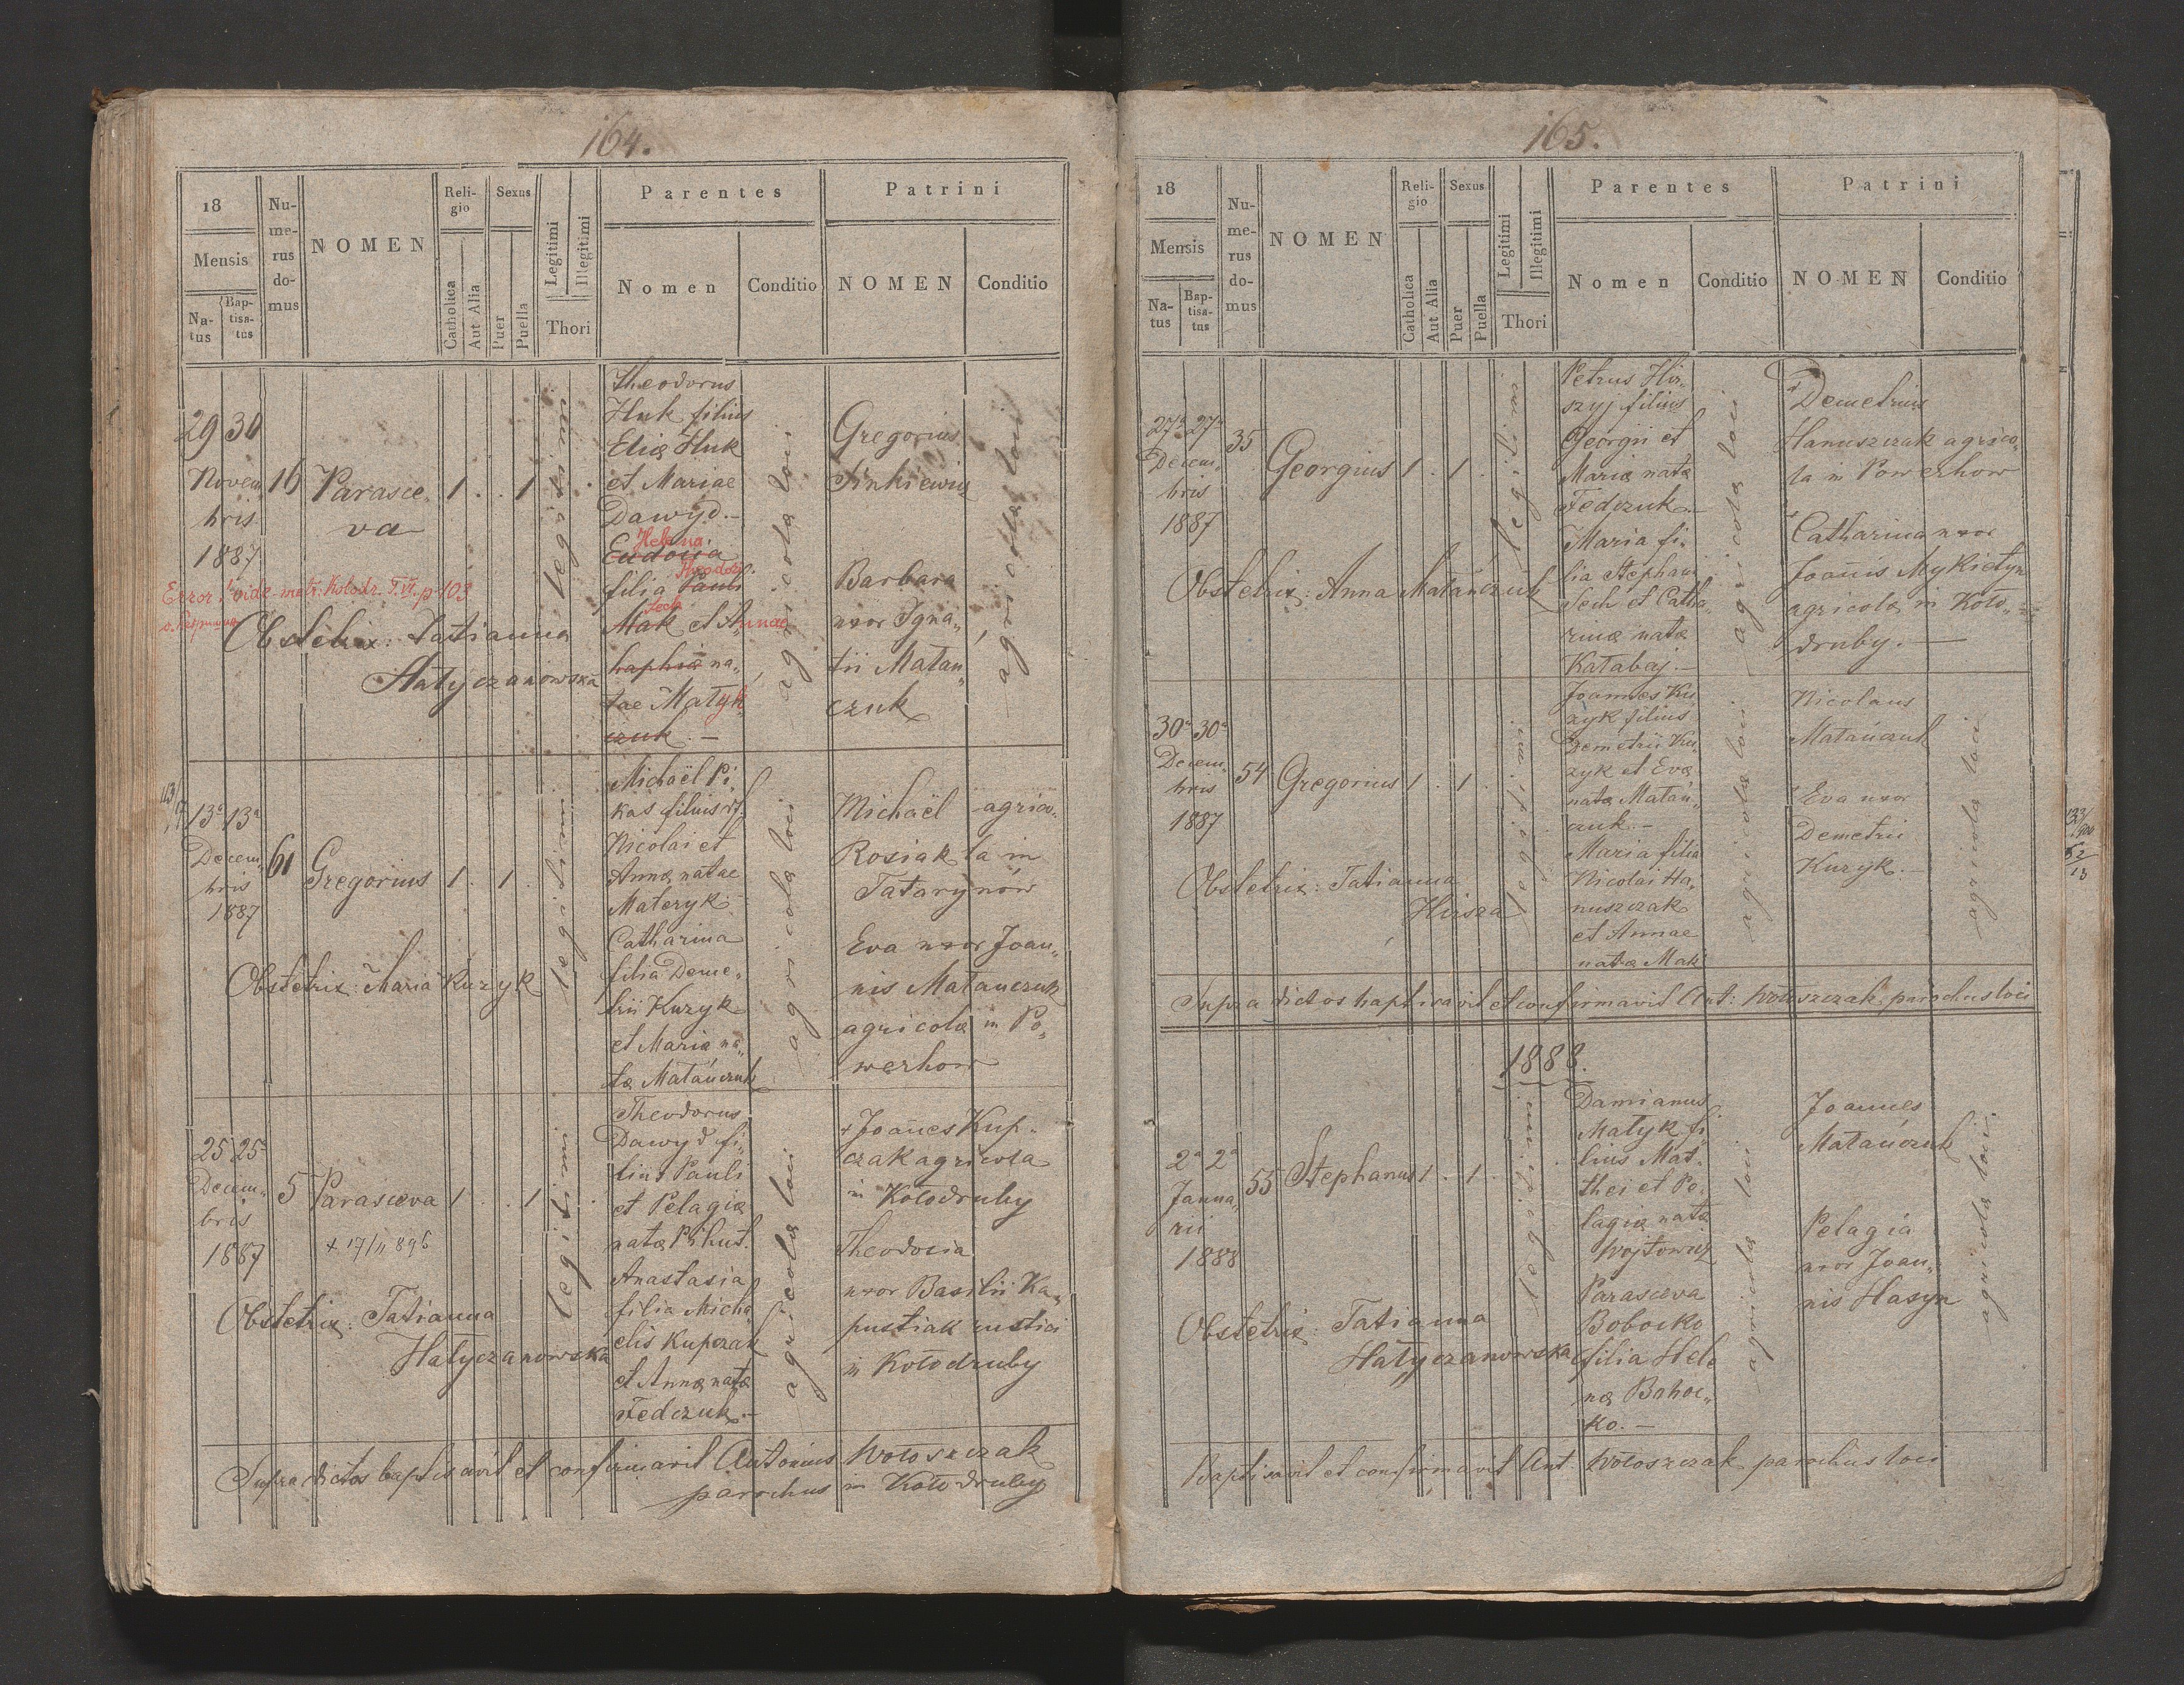 164.
18
Mensis
Na-
tus
Bap-
tisa-
tus
Nu-
me-
rus
do-
mus
NOMEN
Reli-
gio
Catholica
Aut Alia
Sexus
Puer
Puella
Legitimi
Illegitimi
Thori
Parentes
Nomen
Conditio
Patrini
NOMEN
Conditio
29 30
Novem
bris
1887
16
Parasce
va
1 . . 1
legitimi
Theodorus
Huk filius
Eliæ Huk
et Mariae
Dawyd.-
Helena
Eudoxia
Theodosi
filia Pauli
Mak et Annae
haphiæ na„
tae Matyk
czuk.-
agricola loci
Gregorius
Sinkiewicz
Barbara
uxor Igna„
tii Matan„
czuk
agricola loci
Error! vide matr. Kołodr. T.VI. p 103
Obstetrix: Tatianna
Hatyczanowska
13ª 13ª
Decem„
bris
1887
61
Gregorius
1 . 1 .
legitimi
Michaël Pi„
kas filius
Nicolai et
Annæ natae
Materyk
Catharina
filia Deme„
trii Kuzyk
et Mariæ na„
tæ Matańczuk
agricola loci
Michaël agrico„
Rosiak la in
Tatarynów
Eva uxor Joan„
nis Matanczuk
agricolæ in Po„
werhow
Obstetrix: Maria Kuzyk
25 25
Decem„
bris
1887
5
Parasceva
1 . . 1 .
+ 17/11 896
legitimi
Theodorus
Dawyd fi„
lius Pauli
et Pelagiæ
natæ Pihut.
Anastasia
filia Micha
elis Kupczak
et Annæ natæ
Fedczuk.-
agricola loci
+ Joanes Kup„
czak agricola
in Kołodruby
Theodocia
uxor Basilii Ka„
pustiak rustici
in Kołodruby
Obstetrix: Tatianna
Hatyczanowska
Supra dictos baptisavit et confirmavit Antonius Wołoszczak
parochus in Kołodruby
165.
18
Mensis
Na-
tus
Bap-
tisa-
tus
Nu-
me-
rus
do-
mus
NOMEN
Reli-
gio
Catholica
Aut Alia
Sexus
Puer
Puella
Legitimi
Illegitimi
Thori
Parentes
Nomen
Conditio
Patrini
NOMEN
Conditio
27ª 27ª
Decem„
bris
1887
35
Georgius
1 . 1 .
legitimi
Petrus Hir„
szyj filius
Georgii et
Mariæ natæ
Fedczuk.-
Maria fi„
lia Stephani
Sech et Catha„
rinæ natæ
Katabaj.-
agricola loci
Demetrius
Hanuszczak agrico„
la in Powerhow
Catharina uxor
Joannis Mykietyn
agricolæ in Koło„
druby.-
Obstetrix: Anna Matańczuk
30ª 30ª
Decem„
bris
1887
54
Gregorius
1 . 1 .
legitimi
Joannes Ku„
zyk filius
Demetrii Ku„
zyk et Evæ
natæ Matań„
czuk.-
Maria filia
Nicolai Ha„
nuszczak
et Annae
natæ Mak
agricola loci
Nicolaus
Matańczuk
Eva uxor
Demetrii
Kuzyk.-
agricola loci
Obstetrix: Tatianna
Hirsza
Supra dictos baptisavit et confirmavit Ant: Wołoszczak parochus loci
1888.
2ª 2ª
Janua„
rii
1888
55
Stephanus
1 . 1 .
legitimi
Damianus
Matyk fi„
lius Mat„
thei et Pe„
lagiæ natæ
Wojtowicz
Parasceva
Bobocko
filia Hele
næ Bahoc„
ko.-
agricola loci
Joannes
Matańczuk
Pelagia
uxor Joan„
nis Hasyn
agricola loci
Obstetrix: Tatianna
Hatyczanowska
Baptisavit et confirmavit Ant. Wołoszczak parochus loci